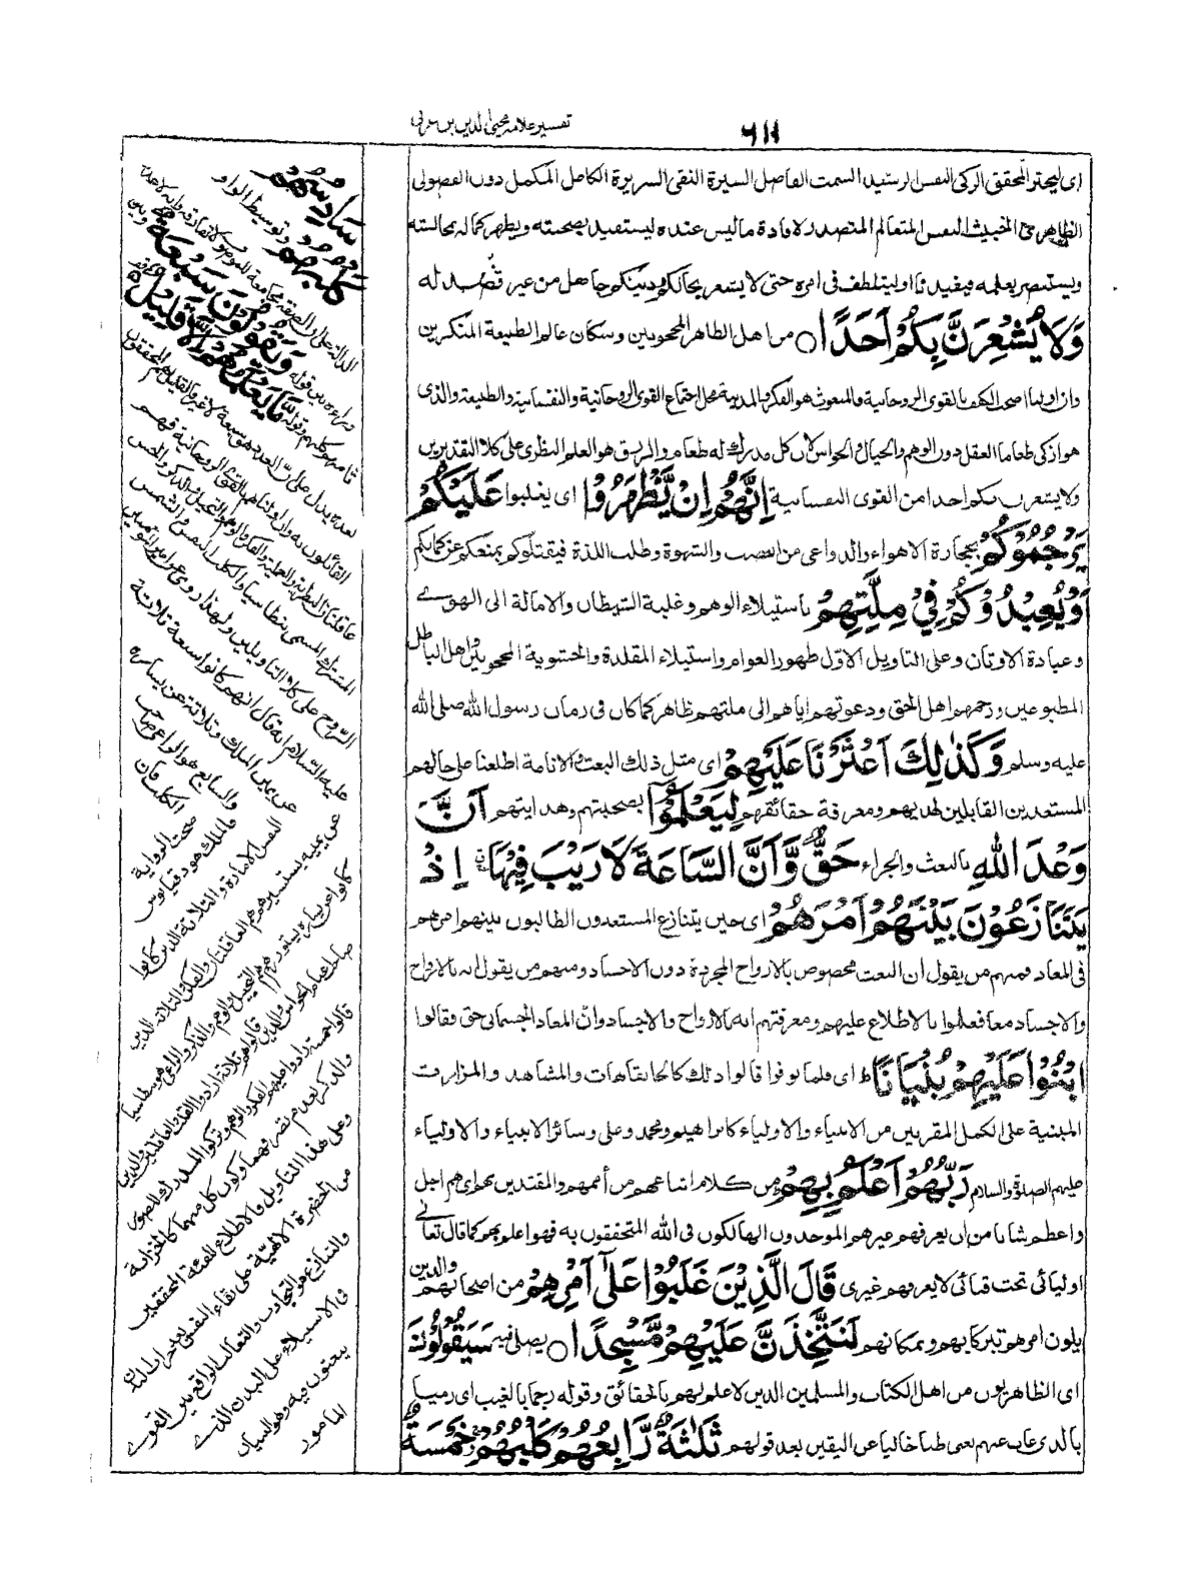 تفسير علامه محيى الدين بن عربى
٦١١
اى ليختر المحقق الزكى النفس الرشيد السمت الفاضل السيرة النقى السريرة الكامل المكمل دون الفضولى
الظاهرى الخبيث النفس المتعالم المتصدر لافادة ما ليس عنده ليستفيد بصحبته ويظهر كماله بمجالسته
ويستبصر بعلمه فيفيدنا او ليتلطف فى امره حتى لا يشعر بحالكم ودينكم جاهل من غير قصد له
وَلَا يُشْعِرَنَّ بِكُمْ اَحَدًا ○ من اهل الظاهر المحجوبين وسكان عالم الطبيعة المنكرين
وان اولنا اصحب الكهف بالقوى الروحانية فالمبعوث هو الفكر والمدينة محل اجتماع القوى الروحانية والنفسانية والطبيعة والذى
هو ازكى طعاما العقل دون الوهم والخيال والحواس لان كل مدرك له طعام والرزق هو العلم النظرى على كلا التقديرين
ولا يشعرن بكم احدا من القوى النفسانية اِنَّهُمْ اِنْ يَّظْهَرُوْا اى يغلبوا عَلَيْكُمْ
يَرْجُمُوْكُمْ بحجارة الاهواء والدواعى من الغضب والشهوة وطلب اللذة فيقتلوكم بمنعكم عن كمالكم
اَوْ يُعِيْدُوْكُمْ فِيْ مِلَّتِهِمْ باستيلاء الوهم وغلبة الشيطان والامالة الى الهوے
وعبادة الاوثان وعلى التاويل الاول ظهور العوام واستيلاء المقلدة والحشوية المحجوبين واهل الباطل
المطبوعين ورجمهم اهل الحق ودعوتهم اياهم الى ملتهم ظاهر كما كان فى زمان رسول الله صلى الله
عليه وسلم وَكَذٰلِكَ اَعْثَرْنَا عَلَيْهِمْ اى مثل ذلك البعث والانامة اطلعنا على حالهم
المستعدين القابلين لهديهم ومعرفة حقائقهم لِيَعْلَمُوْا بصحبتهم وهدايتهم اَنَّ
وَعْدَ اللّٰهِ بالبعث والجزاء حَقٌّ وَّاَنَّ السَّاعَةَ لَا رَيْبَ فِيْهَا اِذْ
يَتَنَازَعُوْنَ بَيْنَهُمْ اَمْرَهُمْ اى حين يتنازع المستعدون الطالبون بينهم امرهم
فى المعاد فمنهم من يقول ان البعث مخصوص بالارواح المجردة دون الاجساد ومنهم من يقول انه بالارواح
والاجساد معا فعلموا بالاطلاع عليهم ومعرفتهم انه بالارواح والاجساد وان المعاد الجسمانى حق وقالوا
ابْنُوْا عَلَيْهِمْ بُنْيَانًا ط اى فلما توفوا قالوا ذلك كالخانقاهات والمشاهد والمزارات
المبنية على الكمل المقربين من الانبياء والاولياء كابراهيم ومحمد وعلى وسائر الانبياء والاولياء
عليهم الصلوة والسلام رَبُّهُمْ اَعْلَمُ بِهِمْ من كلام اتباعهم من أممهم والمقتدين بهم اى هم اجل
واعظم شانا من ان يعرفهم غيرهم الموحدون الهالكون فى الله المتحققون به فهو اعلم بهم كما قال تعالى
اوليائى تحت قبائى لا يعرفهم غيرى قَالَ الَّذِيْنَ غَلَبُوْا عَلٰٓى اَمْرِهِمْ من اصحابهم والذين
يلون امرهم تبركا بهم وبمكانهم لَنَتَّخِذَنَّ عَلَيْهِمْ مَّسْجِدًا ○ يصلى فيه سَيَقُوْلُوْنَ
اى الظاهريون من اهل الكتاب والمسلمين الذين لا علم لهم بالحقائق وقوله رجما بالغيب اى رميا
بالذى غاب عنهم يعنى ظنا خاليا عن اليقين بعد قولهم ثَلٰثَةٌ رَّابِعُهُمْ كَلْبُهُمْ خَمْسَةٌ
سَادِسُهُمْ
كَلْبُهُمْ وتوسيط الواو
الدالة على ان الصفة مجامعة للموصوف لا تفارقه وانه لا عدة
وراءه بين قوله وَيَقُوْلُوْنَ سَبْعَةٌ وبين
ثامنهم كلبهم وقوله مَا يَعْلَمُهُمْ اِلَّا قَلِيْلٌ
بعده يدل على ان العدد هو سبعة لا غير والقليل هم المحققون
القائلون به وان اولناهم بالقوى الروحانية فهم
عاقلتان النظرية والعملية والفكر والوهم والتخيل والذكر والحس
المشترك المسمى بنطاسيا والكلب النفس والشمس
الروح على كلا التاويلين ولهذا روى عن امير المؤمنين
عليه السلام انه قال انهم كانوا سبعة ثلاثة
عن يمين الملك وثلاثة عن يساره
والسابع هو الراعى صاحب
الكلب فان
صحت الرواية
فالملك هو دقيانوس
النفس الامارة والثلاثة الذين كانوا
عن يمينه يستشيرهم هم العاقلتان والفكر والثلاثة الذين
كانوا عن يساره يستوزرهم هم التخيل والوهم والذكر والراعى هو بنطاسيا
صاحب اغنام الحواس والذين قالوا هم ثلاثة ارادوا القلب والعاقلتين والذين
قالوا خمسة زادوا عليهم الفكر والوهم وتركوا المدرك للصور
والذكر لعدم تصرفهما وكون كل منهما كالخزانة
وعلى هذا التاويل فالاطلاع للفئة المحققين
من الحضرة الالهية على بقاء النفس بعد خراب البدن
والتنازع هو التجاذب والتغالب الواقع بين القوے
فى الاستيلاء على البدن الذے
يبعثون فيه وهو البنيان
المامور